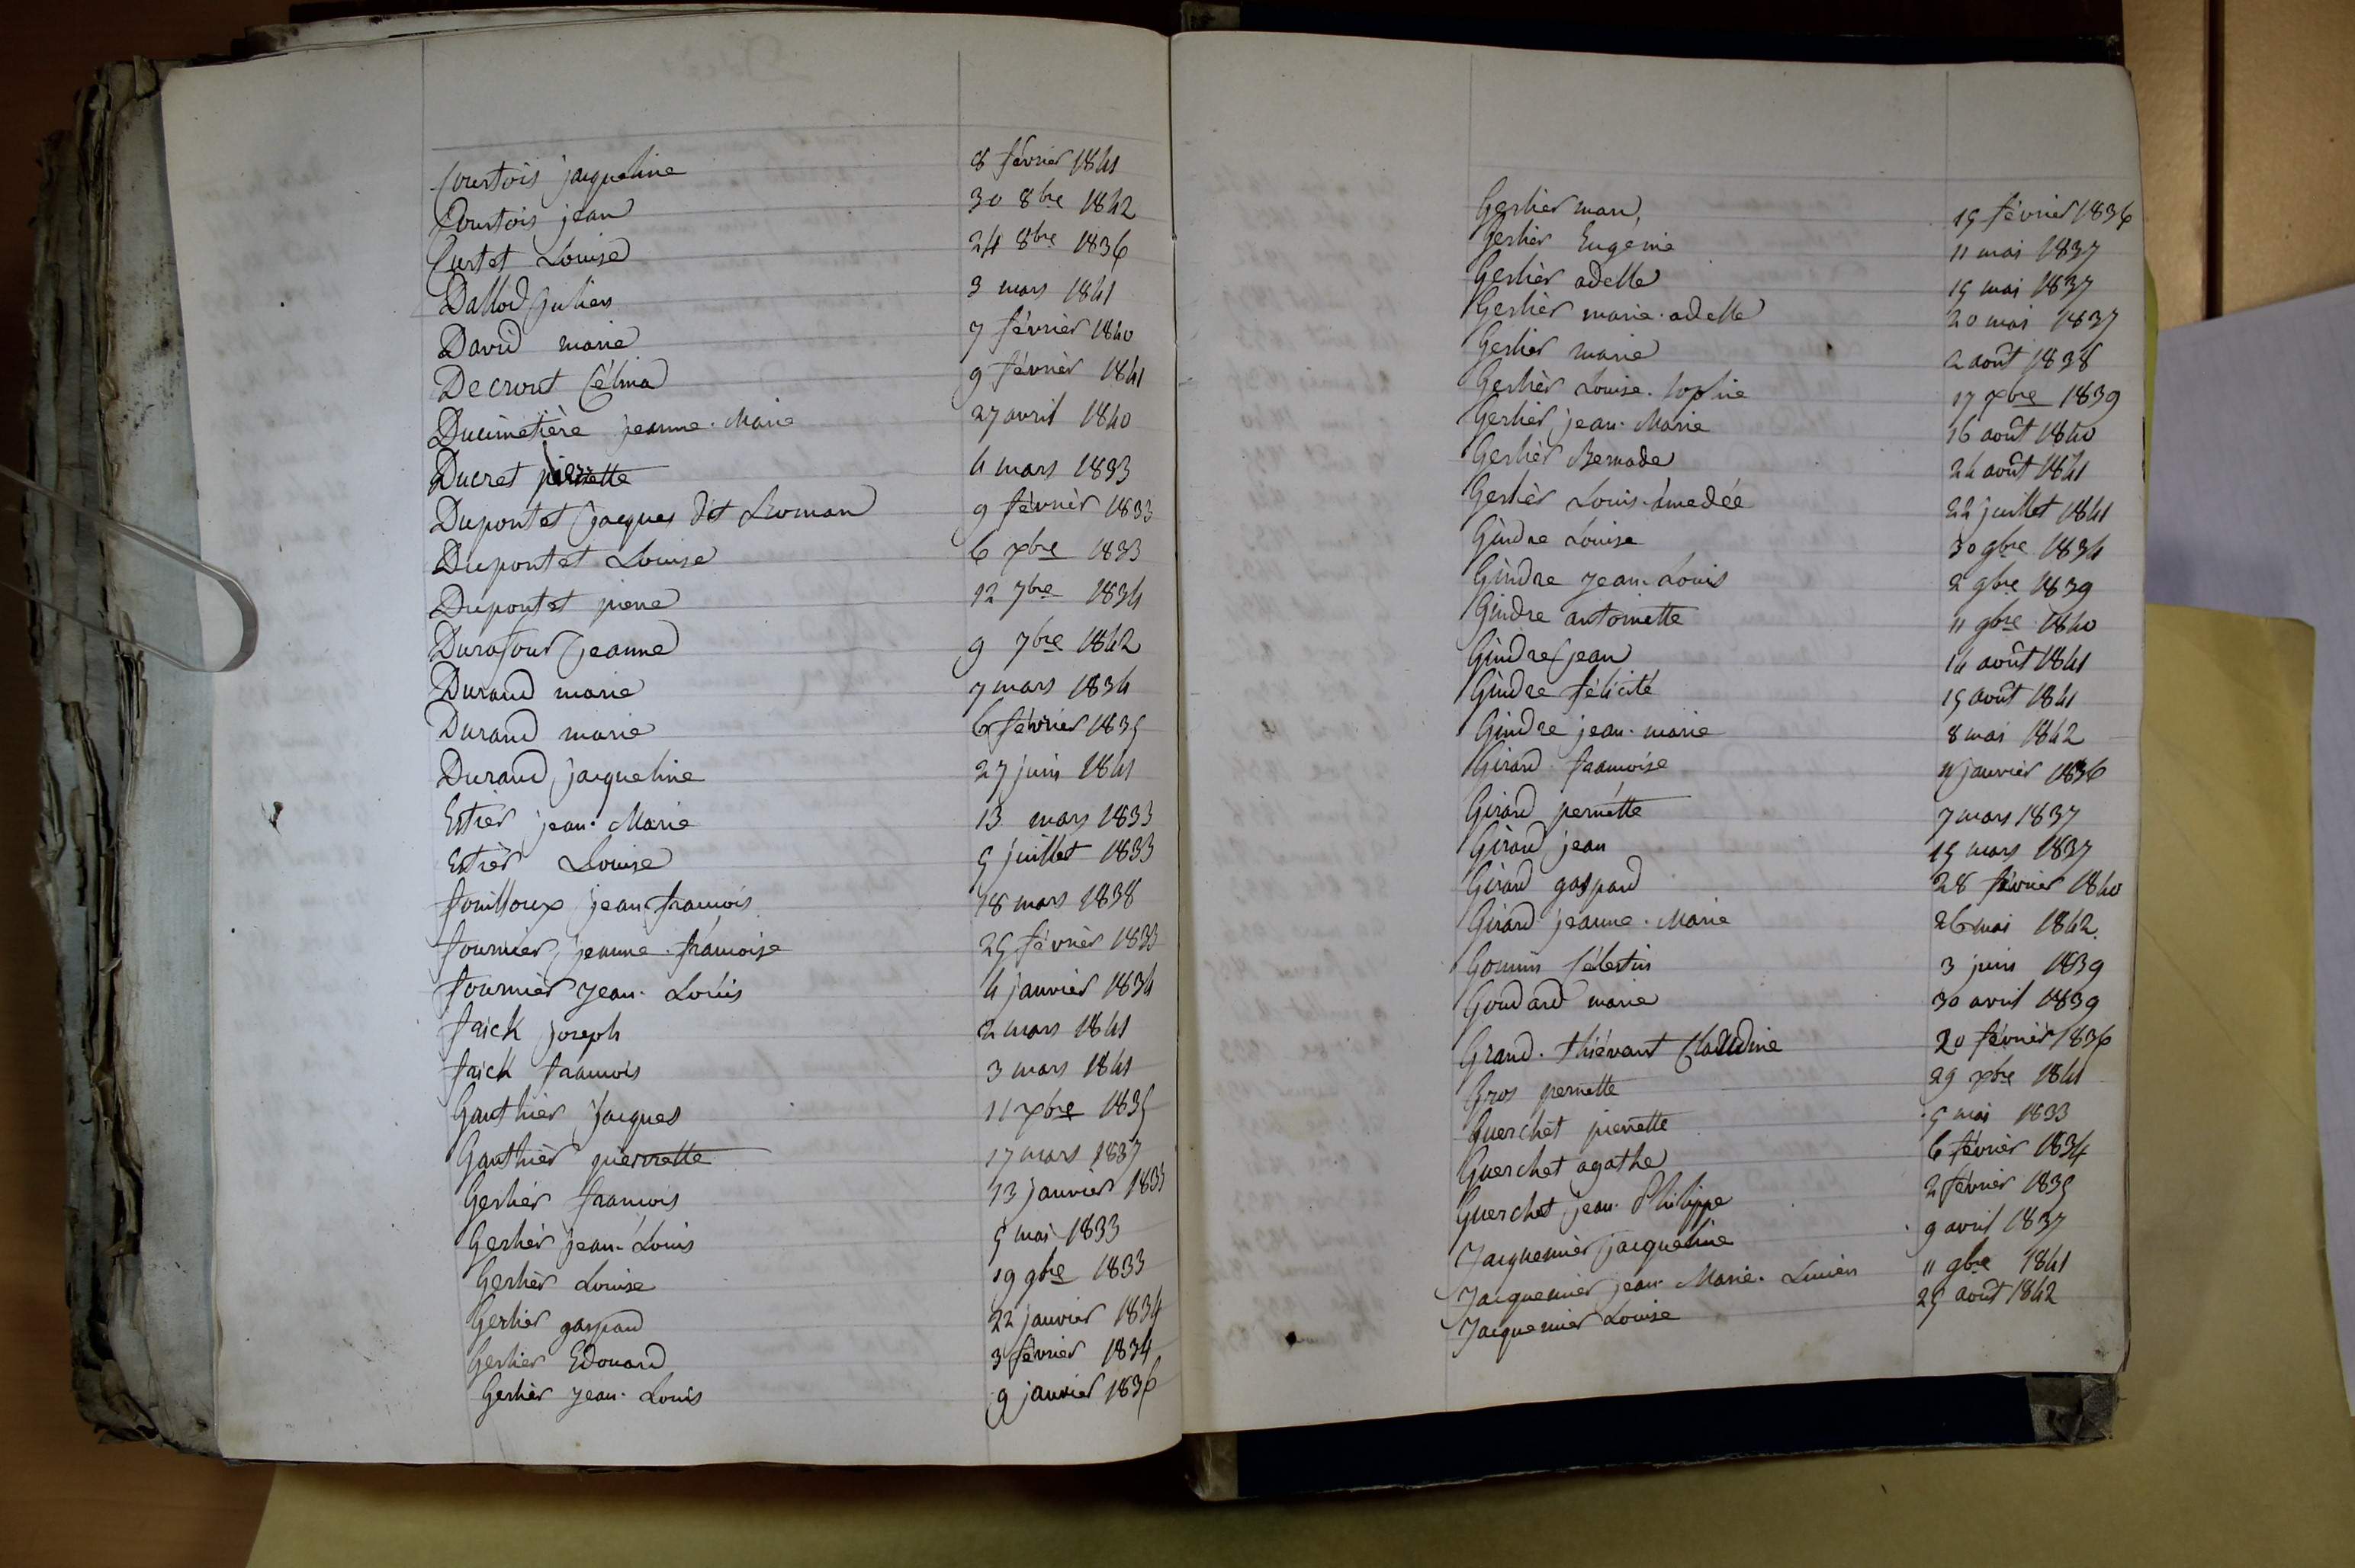 Courtois jacqueline 8 février 1841
Courtois jean 30 8bre 1842
Curtet Louise 24 8bre 1836
Dallod Julien 3 mars 1841
David marie 7 février 1840
Decrout Célina 9 février 1841
Ducimetière jeanne-Marie 27 avril 1840
Ducret pierrette 4 mars 1833
Dupontet Jacques dit Leroman 9 février 1833
Dupontet Louise 6 xbre 1833
Dupontet pierre 12 7bre 1834
Durafour Jeanne 9 7bre 1842
Durand marie 7 mars 1834
Durand marie 6 février 1835
Durand jacqueline 27 juin 1841
Estier jean-Marie 13 mars 1833
Estier Louise 5 juillet 1833
fouilloux jean françois 18 mars 1838
fournier jeanne-françoise 25 février 1833
fournier Jean-Louis 4 janvier 1834
frick joseph 2 mars 1841
frick françois 3 mars 1841
Gauthier Jacques 11 xbre 1835
Gauthier pierrette 17 mars 1837
Gerlier françois 13 janvier 1833
Gerlier jean-Louis 5 mai 1833
Gerlier Louise 19 9bre 1833
Gerlier gaspard 22 janvier 1834
Gerlier Edouard 3 février 1834
Gerlier Jean-Louis 9 janvier 1836
Gerlier marie 15 février 1836
Gerlier Eugénie 11 mai 1837
Gerlier adelle 15 mai 1837
Gerlier marie-adelle 20 mai 1837
Gerlier marie 2 août 1838
Gerlier Louise-Sophie 17 xbre 1839
Gerlier jean-Marie 16 août 1840
Gerlier Bernade 24 août 1841
Gerlier Louis-amedée 22 juillet 1841
Gindre Louise 30 9bre 1834
Gindre Jean-Louis 2 9bre 1839
Gindre antoinette 11 9bre 1840
Gindre Jean 14 août 1841
Gindre félicité 15 août 1841
Gindre jean-marie 8 mai 1842
Girard françoise 11 janvier 1836
Girard pernette 7 mars 1837
Girard jean 15 mars 1837
Girard gaspard 28 février 1840
Girard jeanne-Marie 26 mai 1842
Gomin Célestin 3 juin 1839
Goudard marie 30 avril 1839
Grand-thiévant Claudine 20 février 1836
Gros pernette 29 xbre 1841
Guerchet pierrette 5 mai 1833
Guerchet agathe 6 février 1834
Guerchet jean-Philippe 2 février 1835
Jacquemier jacqueline 9 avril 1837
Jacquemier jean-Marie-Lucien 11 9bre 1841
Jacquemier Louise 25 août 1842